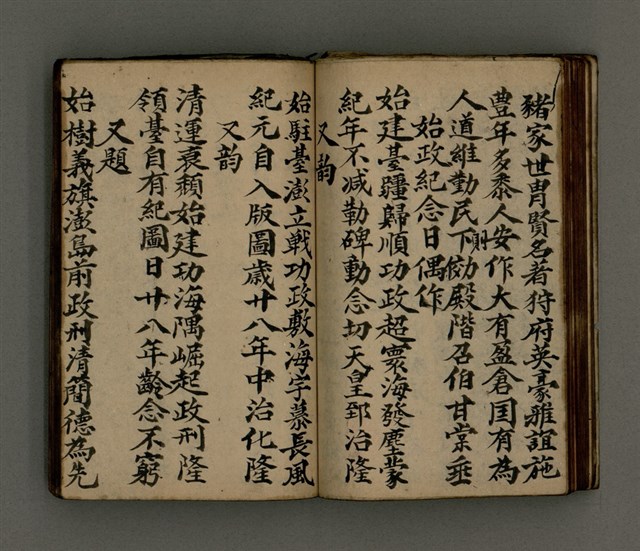 豬家世冑賢名著狩府英豪雅誼施
豊年多黍人安作大有盈倉国有為
人道維勤民下劾殿階召伯甘棠垂
則
始政紀念日偶作
始建臺疆歸順功政超寰海發塵蒙
紀年不減勒碑動念切天皇郅治隆
又韵
始駐臺澎立戰功政敷海宇慕長風
紀元自入版圖歲廿八年中治化隆
又韵
清運衰頹始建功海隅崛起政刑隆
領臺自有紀圖日廿八年齡念不窮
又題
始樹義旗澎島前政刑清簡德為先